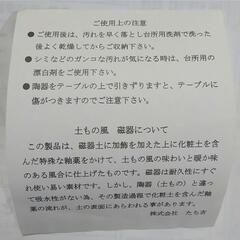 ご使用上の注意
●ご使用後は、汚れを早く落とし台所用洗剤で洗った
後よく乾燥してからご収納下さい。
●シミなどのガンコな汚れが気になる時は、台所用の
漂白剤をご使用下さい。
●陶器をテーブルの上で引きずりますと、テーブルに
傷がつきますのでご注意下さい。
土もの風 磁器について
この製品は、磁器土に加飾を加えた上に化粧土を含
んだ特殊な釉薬をかけて、土もの風の味わいと暖か味
のある風合に仕上げたものです。磁器は耐久性にすぐ
れ使い易い素材です。しかし、陶器（土もの）と違っ
て吸水性がない為、その製造過程で化粧土を含んだ釉
薬の流れが、土の表面にあらわれる事があります。
株式会社 たち吉